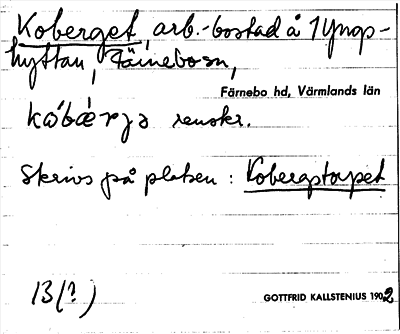 Koberget, arb.-bostad å Yngs-
hyttan, Färnebo sn,
Färnebo hd, Värmlands län
kω̄́bæ̀rjə renskr.
Skrivs på platsen: Kobergstorpet
13(?)
GOTTFRID KALLSTENIUS 1902